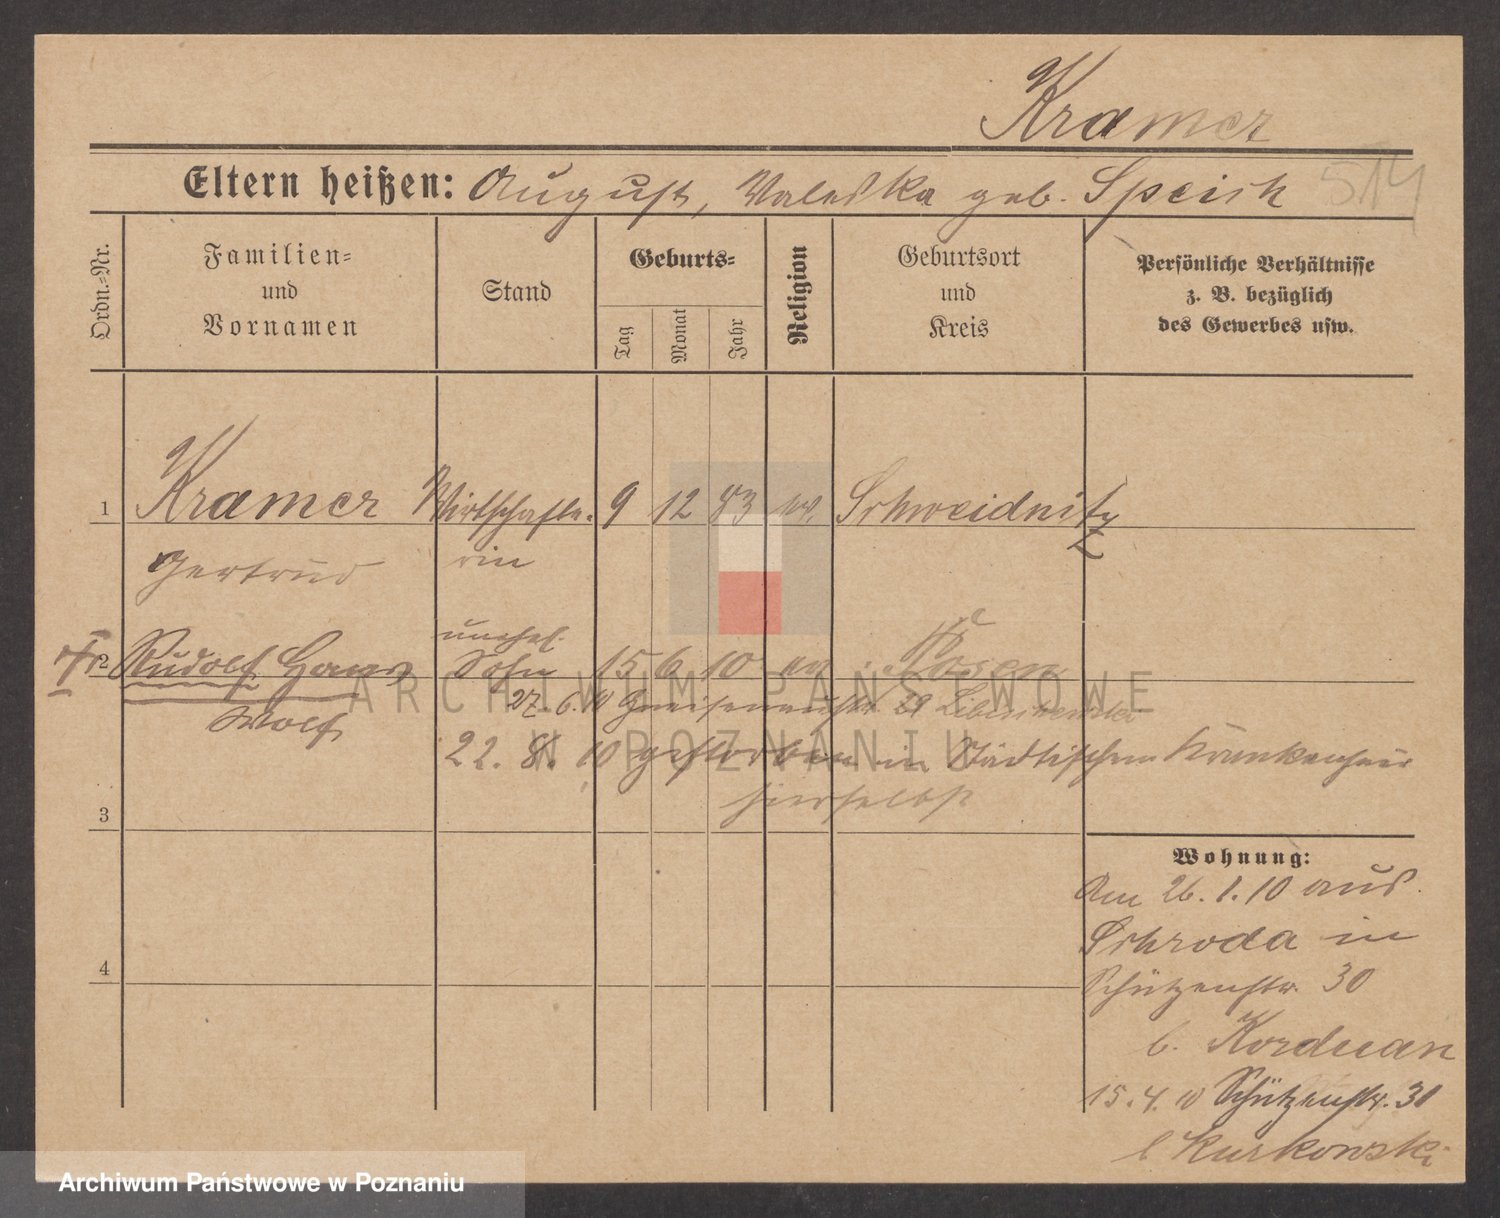 Kramer
514
Eltern heißen: August, Valeska geb. Speich
Ordn.-Nr.
Familien-
und
Vornamen
Stand
Geburts-
Tag
Monat
Jahr
Religion
Geburtsort
und
Kreis
Persönliche Verhältnisse
z. B. bezüglich
des Gewerbes usw.
1 Kramer Wirtschafte- 9 12 83 Schweidnitz
Gertrud rin
unehel.
2 Rudolf Hans Sohn 15 6 10 Posen
Wolf 27.6.10 Gneisenaustr. 29
22. 8. 10 gestorben im Städtischen Krankenhaus
hierselbst
3
Wohnung:
Am 26.1.10 aus
Schroda in
4
Schützenstr. 30
b. Korduan
15.4.10 Schützenstr. 31
b Kurkowski
ARCHIWUM PAŃSTWOWE
W POZNANIU
Archiwum Państwowe w Poznaniu